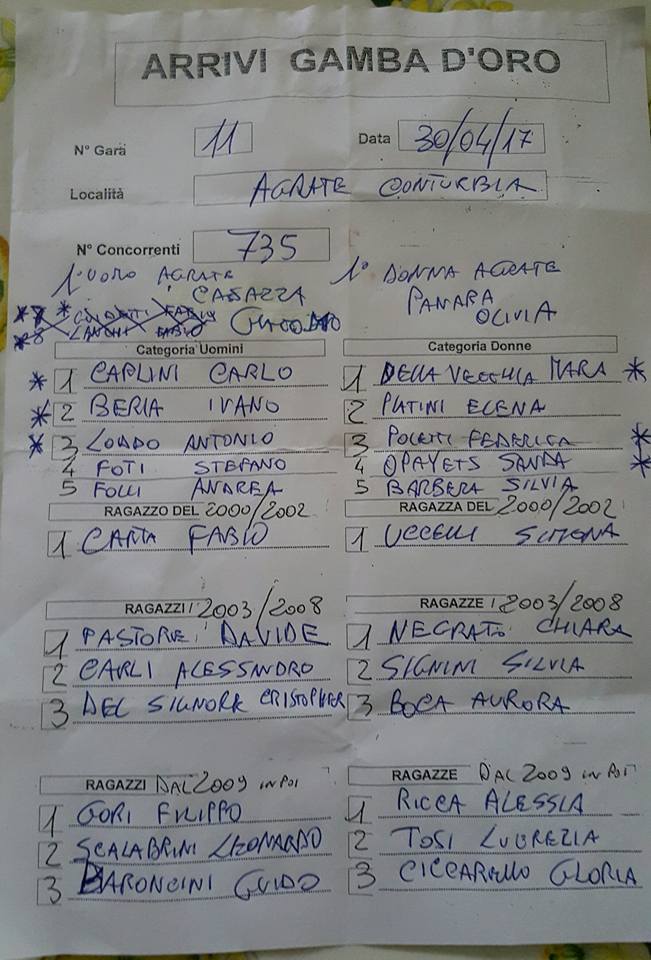 ARRIVI GAMBA D'ORO
N° Gara 11 Data 30/04/17
Località AGRATE CONTURBIA
N° Concorrenti 735
1° UOMO AGRATE
CASAZZA
1° DONNA AGRATE
PANARA
OLIVIA
Categoria Uomini
* 1 CARLINI CARLO
* 2 BERIA IVANO
* 3 LONDO ANTONIO
4 FOTI STEFANO
5 FOLLI ANDREA
Categoria Donne
1 DELLA VECCHIA MARA *
2 PLATINI ELENA
3 POLETTI FEDERICA *
4 OPAYETS SANDA *
5 BARBERA SILVIA
RAGAZZO DEL 2000/2002
1 CANTA FABIO
RAGAZZA DEL 2000/2002
1 UCCELLI SIMONA
RAGAZZI / 2003/2008
1 PASTORE DAVIDE
2 CARLI ALESSANDRO
3 DEL SIGNORE CRISTOPHER
RAGAZZE / 2003/2008
1 NEGRATO CHIARA
2 SIGNINI SILVIA
3 BOCA AURORA
RAGAZZI DAL 2009 IN POI
1 GORI FILIPPO
2 SCALABRINI LEONARDO
3 BARONCINI GUIDO
RAGAZZE DAL 2009 IN POI
1 RICCA ALESSIA
2 TOSI LUCREZIA
3 CICCARELLO GLORIA